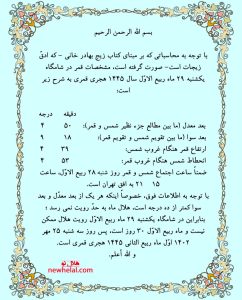 بسم الله الرحمن الرحیم
با توجه به محاسباتی که بر مبنای کتاب زیج بهادر خانی - که ادقّ
زیجات است- صورت گرفته است، مشخصات قمر در شامگاه
یکشنبه ۲۹ ماه ربیع الاوّل سال ۱۴۴۵ هجری قمری به شرح زیر
است:
دقیقه درجه
بعد معدل (ما بین مطالع جزء نظیر شمس و قمر): ۵۰ ۴
بعد سوا (ما بین تقویم شمس و تقویم قمر): ۱۸ ۹
ارتفاع قمر هنگام غروب شمس: ۳۹ ۴
انحطاط شمس هنگام غروب قمر: ۵۳ ۴
ضمناً ساعت اجتماع شمس و قمر روز شنبه ۲۸ ربیع الاوّل، ساعت
۱۵ : ۲۱ به افق تهران است.
با توجه به اطلاعات فوق، خصوصاً اینکه هر یک از بعد معدّل و بعد
سوا کمتر از ده درجه است، هلال ماه به حدّ رویت نمی رسد ؛
بنابراین در شامگاه یکشنبه ۲۹ ماه ربیع الاوّل رویت هلال ممکن
نیست و ماه ربیع الاوّل ۳۰ روز است، پس روز سه شنبه ۲۵ مهر
۱۴۰۲ اوّل ماه ربیع الثانی ۱۴۴۵ هجری قمری است.
و الله أعلم.
هلال نو
newhelal.com